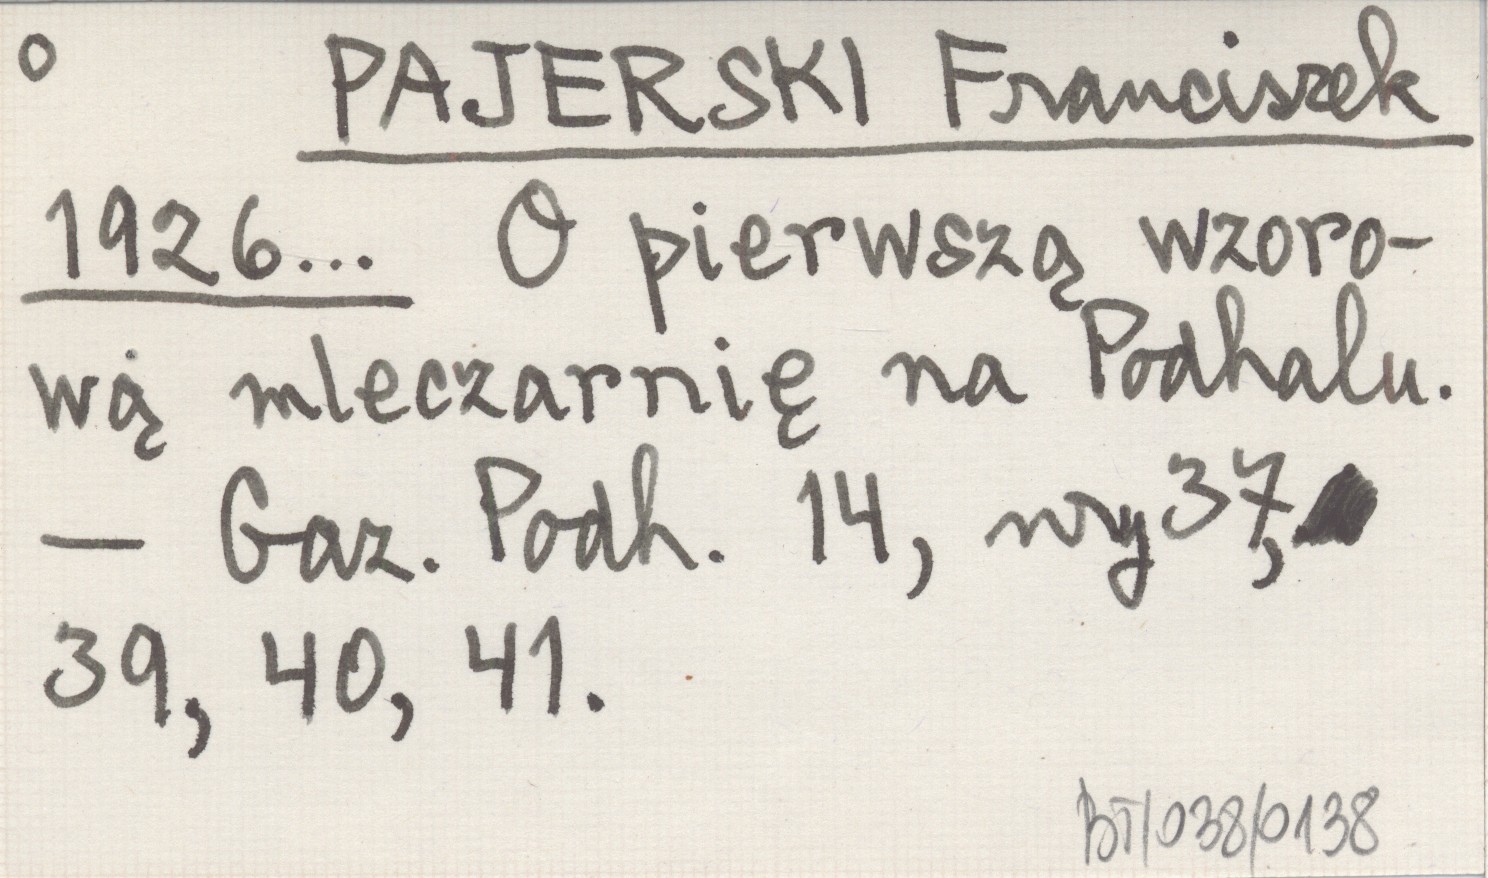 o PAJERSKI Franciszek
1926... O pierwszą wzoro-
wą mleczarnię na Podhalu.
— Gaz. Podh. 14, nry 37,
39, 40, 41.
BT/038/0138